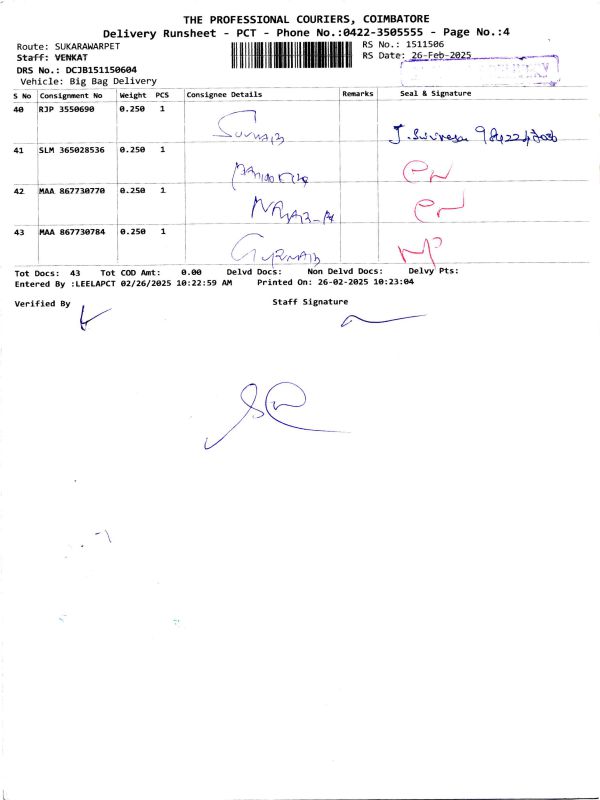 THE PROFESSIONAL COURIERS, COIMBATORE
Delivery Runsheet - PCT - Phone No.:0422-3505555 - Page No.:4
Route: SUKARAWARPET
RS No.: 1511506
Staff: VENKAT
RS Date: 26-Feb-2025
DRS No.: DCJB151150604
Vehicle: Big Bag Delivery
S No Consignment No Weight PCS Consignee Details Remarks Seal & Signature
40 RJP 3550690 0.250 1
41 SLM 365028536 0.250 1
42 MAA 867730770 0.250 1
43 MAA 867730784 0.250 1
Tot Docs: 43 Tot COD Amt: 0.00 Delvd Docs: Non Delvd Docs: Delvy Pts:
Entered By :LEELAPCT 02/26/2025 10:22:59 AM Printed On: 26-02-2025 10:23:04
Verified By Staff Signature